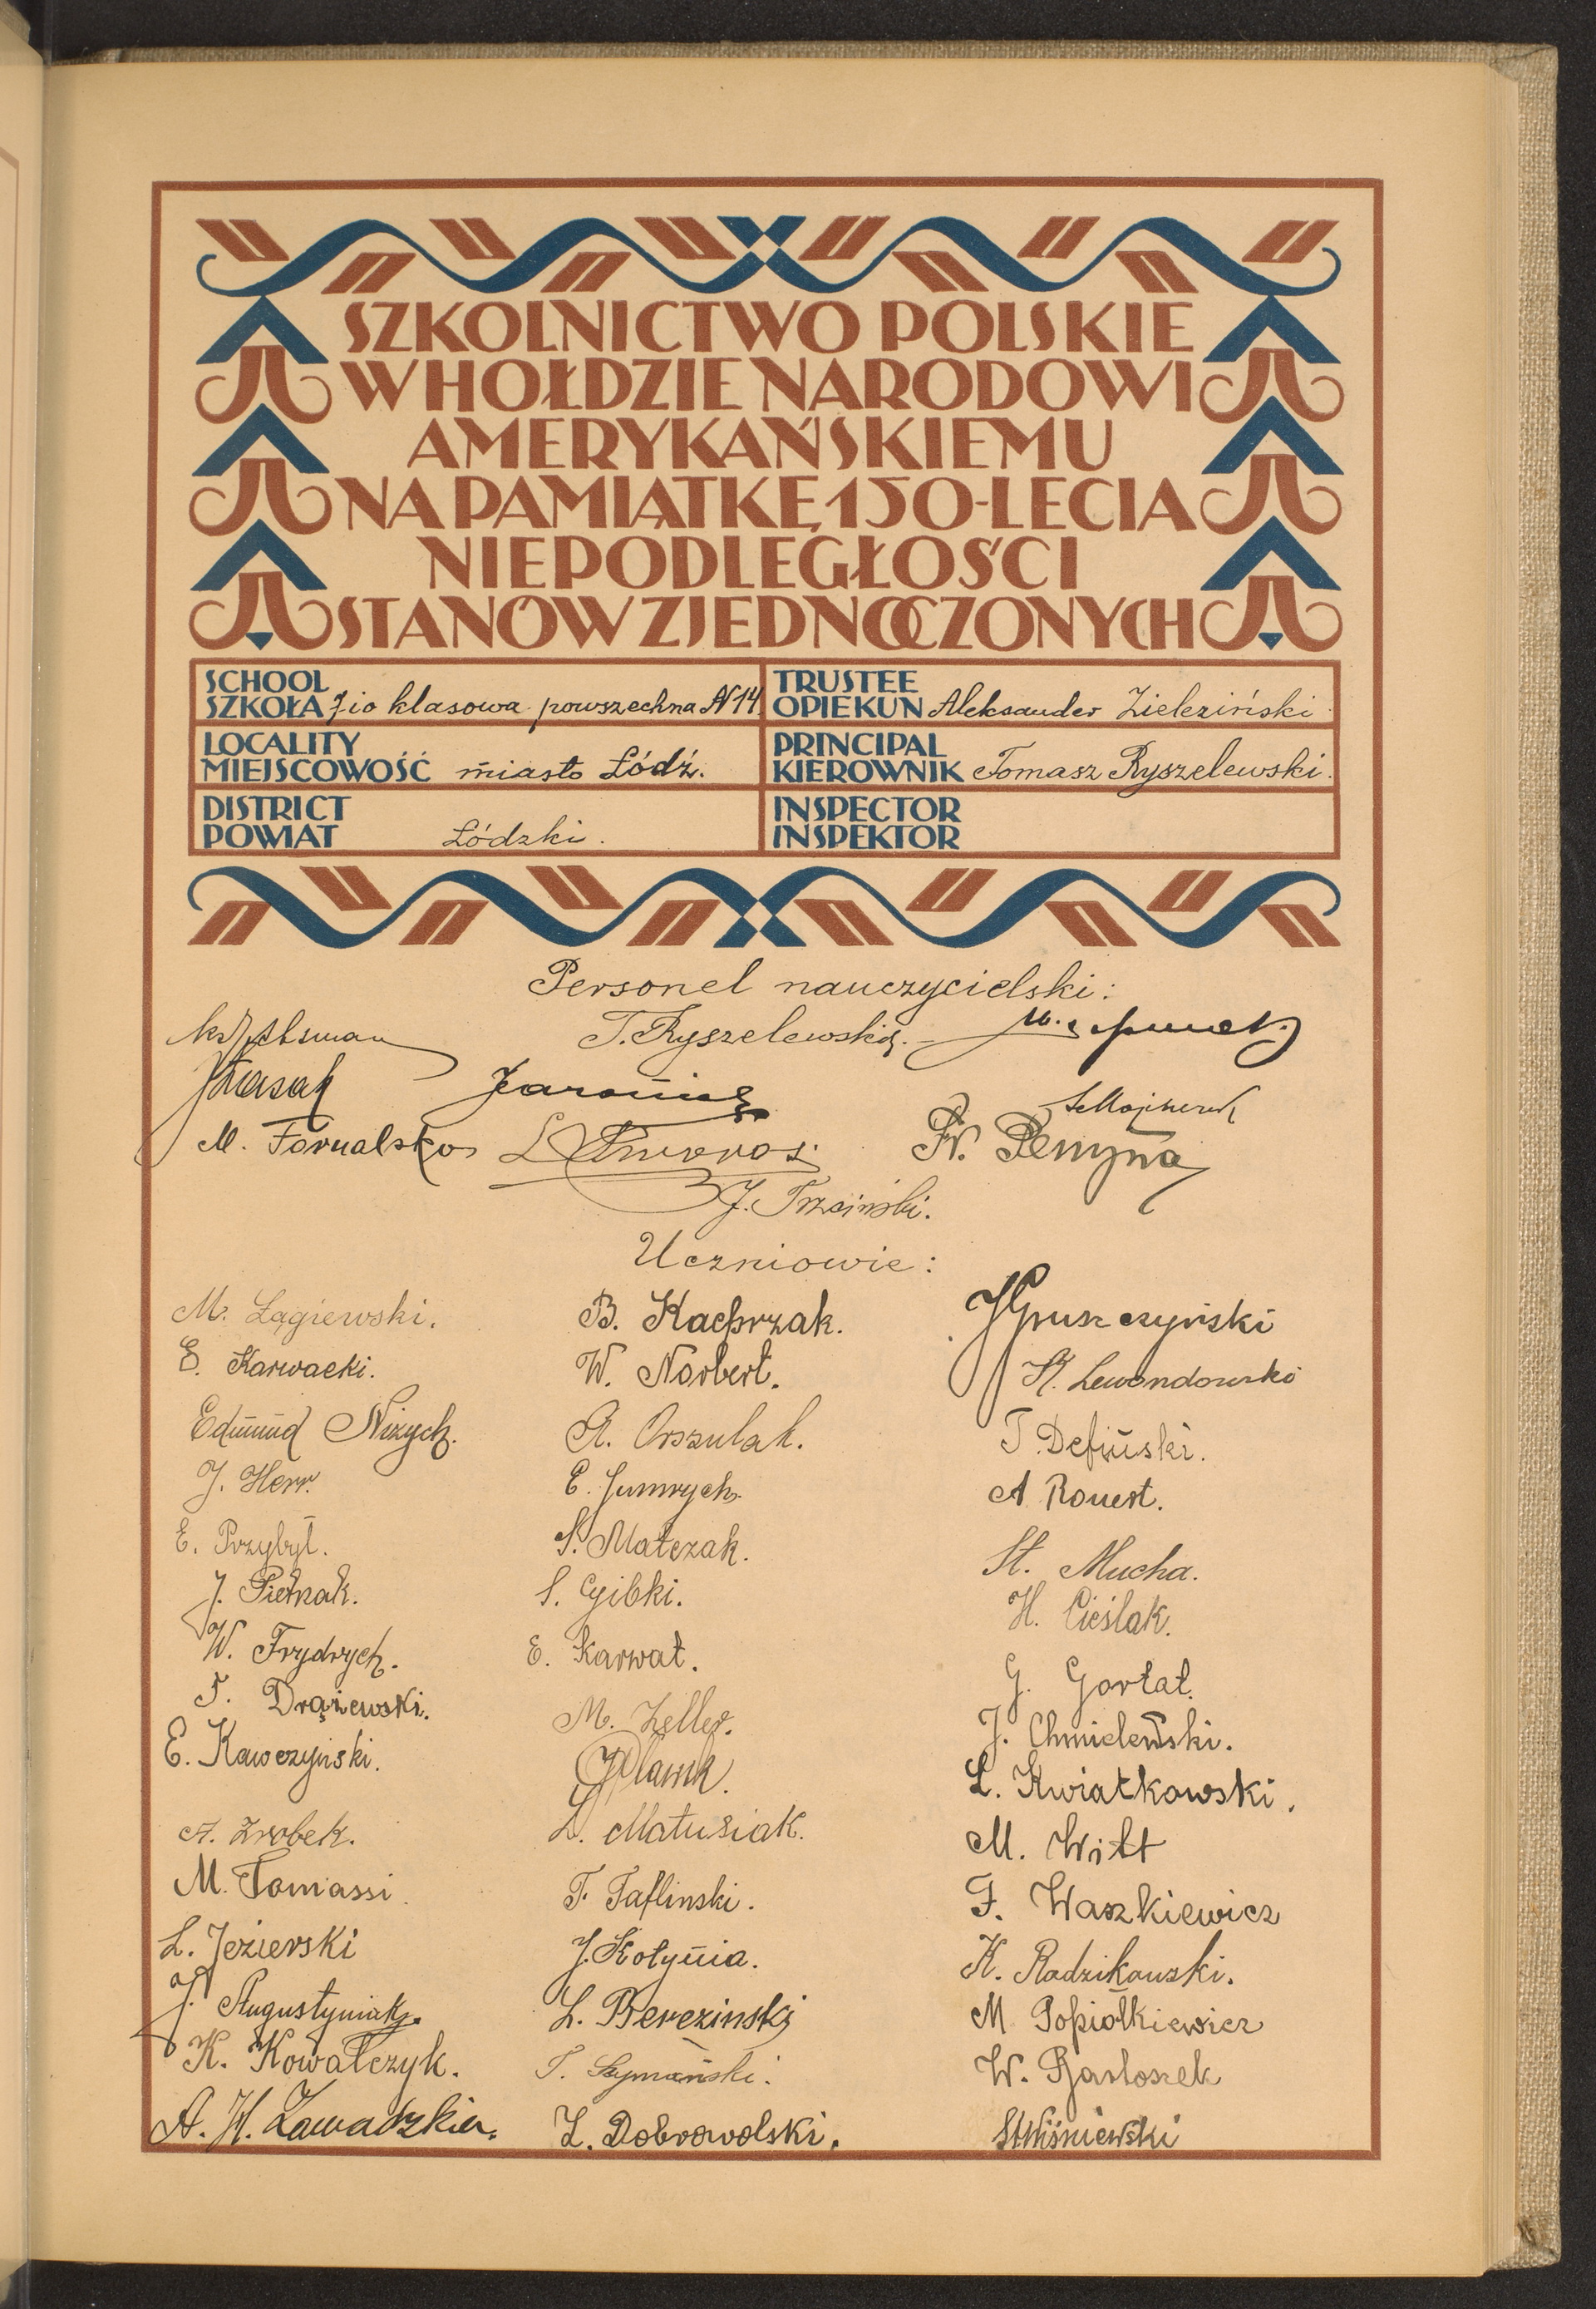 SZKOLNICTWO POLSKIE
W HOŁDZIE NARODOWI
AMERYKAŃSKIEMU
NA PAMIĄTKĘ 150-LECIA
NIEPODLEGŁOŚCI
STANÓW ZJEDNOCZONYCH
SCHOOL
SZKOŁA 7io klasowa powszechna N 14
TRUSTEE
OPIEKUN Aleksander Zieleziński
LOCALITY
MIEJSCOWOŚĆ miasto Łódź.
PRINCIPAL
KIEROWNIK Tomasz Ryszelewski.
DISTRICT
POWIAT Łódzki.
INSPECTOR
INSPEKTOR
Personel nauczycielski:
T. Ryszelewski
M. Fornalska
Fr. Penyna
J. Trzciński.
Uczniowie:
M. Łągiewski.
B. Kacprzak.
J Gruszczyński
E. Karwacki.
W. Norbert.
K. Lewandowski
Edmund Nizych.
A. Orszulak.
T. Defiński.
J. Herr.
E. Jumrych.
A Ronert.
E. Przybył.
S. Matczak.
St. Mucha.
J. Pietrzak.
S. Cyibki.
H. Cieślak.
W. Frydrych.
E. Karwat.
G. Gortat.
T. Drążewski.
M. Zeller.
J. Chmielewski.
E. Kawczyński.
L. Kwiatkowski.
A. Zrobek.
L. Matusiak.
M. Witt
M. Tomassi.
T. Taflinski.
F. Waszkiewicz
L. Jezierski
J. Kotynia.
K. Radzikowski.
J. Augustyniak.
L. Berezinski
M Popiołkiewicz
K. Kowalczyk.
T. Szymański.
W. Bartoszek
A. H. Zawadzkier.
Z. Dobrowolski.
St Wiśniewski